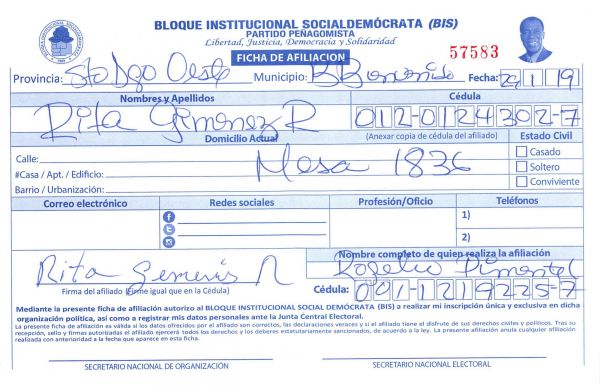 BLOQUE INSTITUCIONAL SOCIALDEMÓCRATA (BIS)
PARTIDO PEÑAGOMISTA
Libertad, Justicia, Democracia y Solidaridad
FICHA DE AFILIACION
57583
Provincia: Sto Dgo Oeste Municipio: Fecha: 19
Nombres y Apellidos Cédula
Rita Gimenez R 012-0124302-7
Domicilio Actual (Anexar copia de cédula del afiliado) Estado Civil
Calle: Mesa 1836 Casado
#Casa / Apt. / Edificio: Soltero
Barrio / Urbanización: Conviviente
Correo electrónico Redes sociales Profesión/Oficio Teléfonos
1)
2)
Nombre completo de quien realiza la afiliación
Rita R Rogelio Pimentel
Firma del afiliado (Firme igual que en la Cédula) Cédula: 001-1219225-7
Mediante la presente ficha de afiliación autorizo al BLOQUE INSTITUCIONAL SOCIAL DEMÓCRATA (BIS) a realizar mi inscripción única y exclusiva en dicha
organización política, así como a registrar mis datos personales ante la Junta Central Electoral.
La presente ficha de afiliación es válida si los datos ofrecidos por el afiliado son correctos, las declaraciones veraces y si el afiliado tiene el disfrute de sus derechos civiles y políticos. Tras su
recepción, sello y firmas autorizadas el afiliado ejercerá todos los derechos y los deberes estatutariamente sancionados, de acuerdo a la ley. La presente afiliación anula cualquier afiliación
realizada con anterioridad a la fecha que aparece en esta ficha.
SECRETARIO NACIONAL DE ORGANIZACIÓN SECRETARIO NACIONAL ELECTORAL